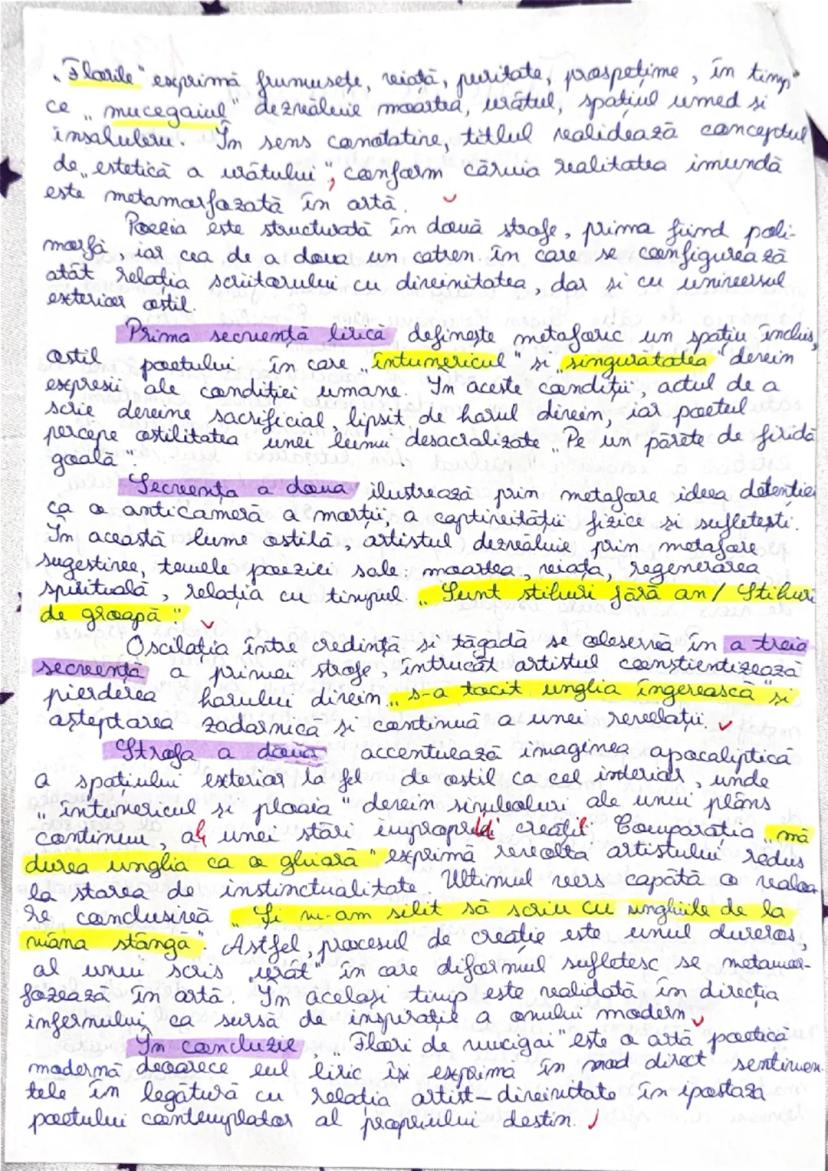 „Florile" exprimă frumusețe, viață, puritate, prospețime, în timp
ce „mucegaiul" dezvăluie moartea, urâtul, spațiul umed și
insalubru. În sens conotativ, titlul validează conceptul
de „estetică a urâtului", conform căruia realitatea imundă
este metamorfozată în artă.
Poezia este structurată în două strofe, prima fiind poli-
morfă, iar cea de a doua un catren în care se configurează
atât relația scriitorului cu divinitatea, dar și cu universul
exterior ostil.
Prima secvență lirică definește metaforic un spațiu închis,
ostil poetului în care „întunericul" și „singurătatea" devin
expresii ale condiției umane. În aceste condiții, actul de a
scrie devine sacrificial, lipsit de harul divin, iar poetul
percepe ostilitatea unei lumi desacralizate „Pe un părete de firidă
goală".
Secvența a doua ilustrează prin metafore ideea detenției
ca o anticameră a morții, a captivității fizice și sufletești.
În această lume ostilă, artistul dezvăluie prin metafore
sugestive, temele poeziei sale: moartea, viața, regenerarea
spirituală, relația cu timpul. „Sunt stihuri fără an/ Stihuri
de groapă"
Oscilația între credința și tăgadă se observă în a treia
secvență a primei strofe, întrucât artistul conștientizează
pierderea harului divin „s-a tocit unghia îngerească" și
așteptarea zadarnică și continuă a unei revelații.
Strofa a două accentuează imaginea apocaliptică
a spațiului exterior la fel de ostil ca cel interior, unde
„întunericul și ploaia" devin simboluri ale unui plâns
continuu, al unei stări improprii creații. Comparația „mă
durea unghia ca o ghiară" exprimă revolta artistului redus
la starea de instinctualitate. Ultimul vers capătă o valoa-
re conclusivă „Și m-am silit să scriu cu unghiile de la
mâna stângă". Astfel, procesul de creație este unul dureros,
al unui scris „urât" în care diformul sufletesc se metamor-
fozează în artă. În același timp este validată în direcția
infernului ca sursă de inspirație a omului modern.
În concluzie, „Flori de mucigai" este o artă poetică
modernă deoarece eul liric își exprimă în mod direct sentimen-
tele în legătură cu relația artist-divinitate în ipostaza
poetului contemplator al propriului destin.